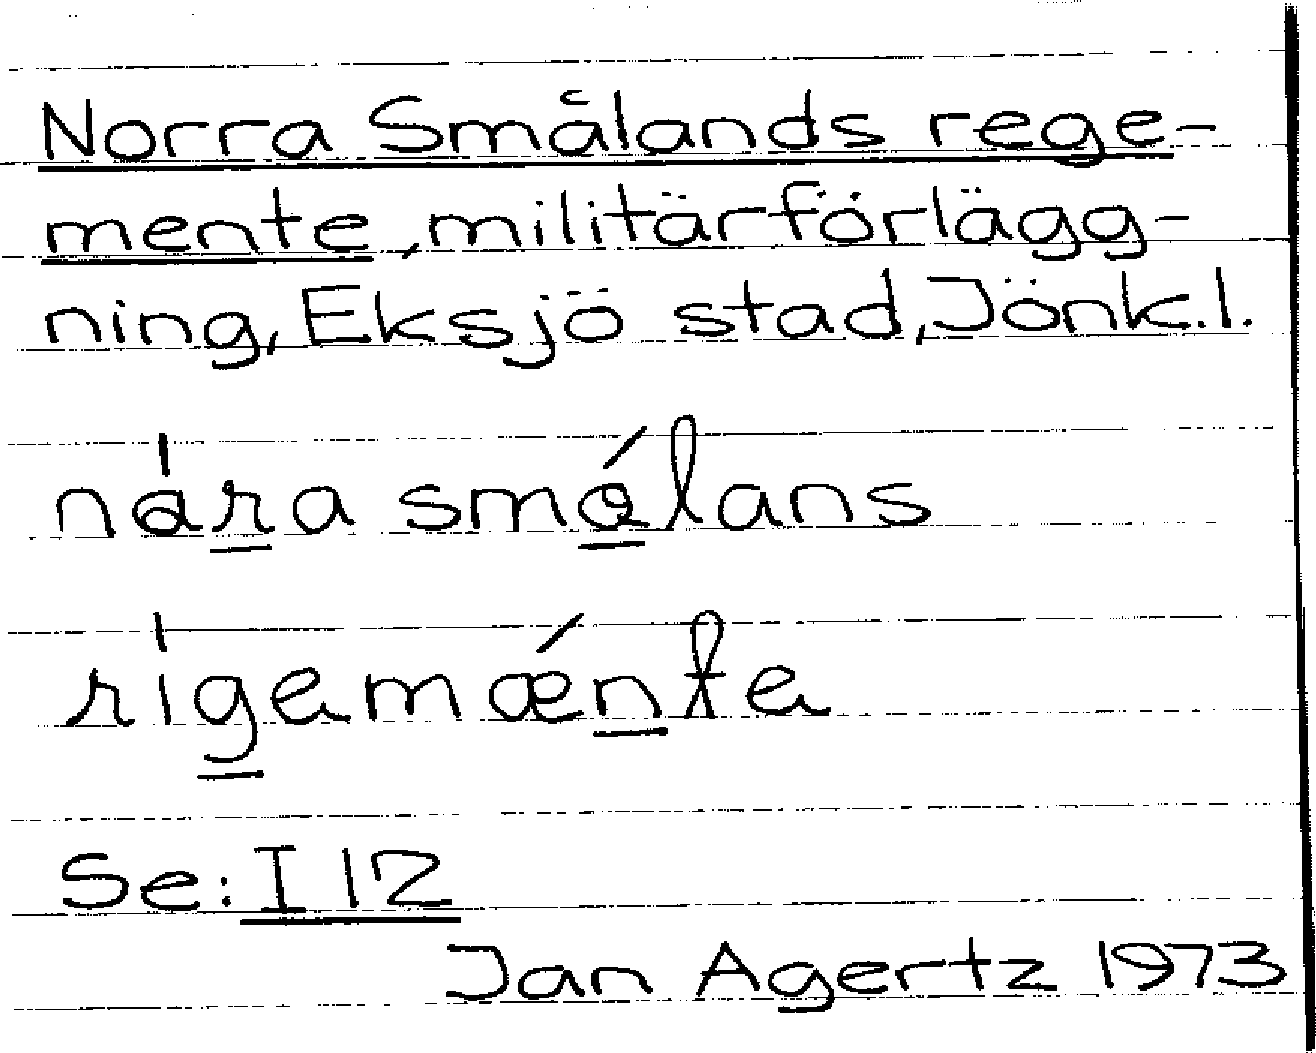 Norra Smålands rege-
mente, militärförlägg-
ning, Eksjö stad, Jönk.l.
nåra smålans
rigemænte
Se: I 12
Jan Agertz 1973